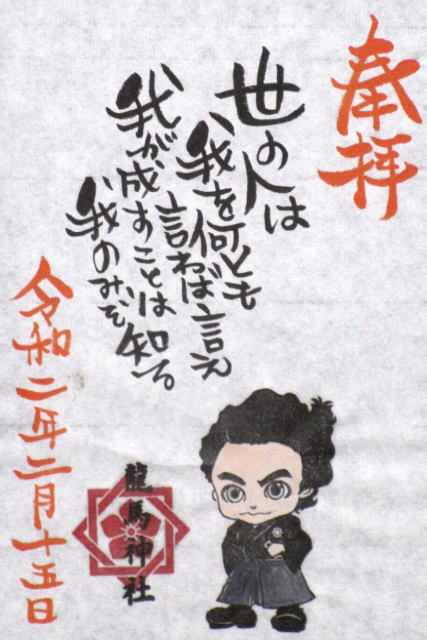 奉拝
世の人は
我を何とも
言わば言え
我が成すことは
我のみぞ知る
龍馬神社
令和二年二月十五日